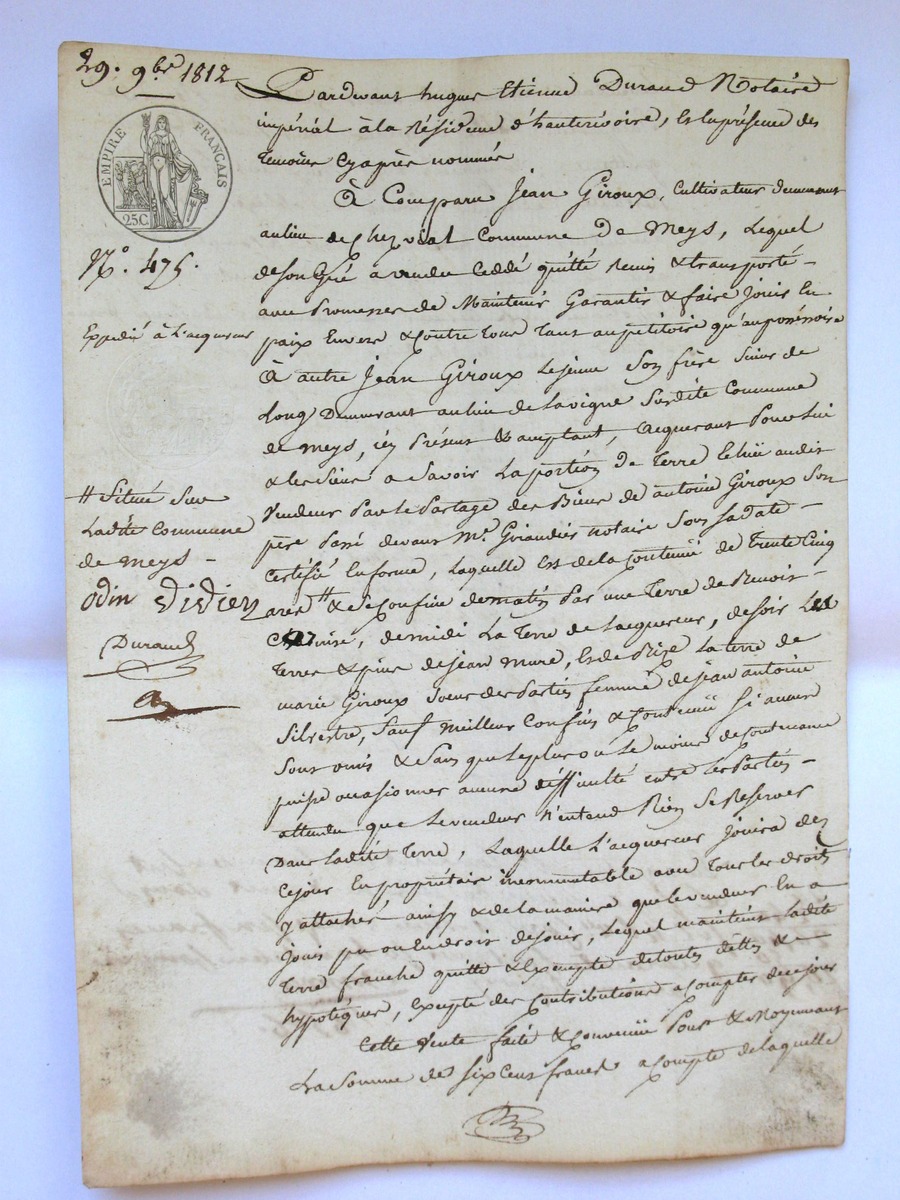 29. 9bre 1812
EMPIRE FRANÇAIS
25C
No. 475.
Expedié à L'acquereur
# Situé Sur
Ladite Commune
de Meys -
odin Didier
Durand
Pardevant hugues Etienne Durand Notaire
impérial à la Résidence d'hauterivoire, & En présence des
temoins Cyaprès nommés
À Comparu Jean Giroux, Cultivateur demeurant
au lieu de Chezvial Commune De Meys, Lequel
de Son Gré à vendu Ceddé quitté Remis & transporté -
avec Promesses de Maintenir Garantir & faire Jouir En
paix Envers & Contre tous tant au petitoire qu'au possessoire
À autre Jean Giroux Le jeune Son frère
Long Demeurant au lieu de Lavigne Susdite Commune
de Meys, ici Présent & acceptant, acquerant Pour Lui
& les Siens a Savoir La portion de Terre Echüe audit
Vendeur Par Le Partage des Biens de antoine Giroux Son
père Passé devant Me. Giraudier notaire Sous Sa Date -
Certifié En forme, Laquelle Est de la Contenüe de trente Cinq
ares # & Se Confine de matin Par une Terre de Benoit
de midi La terre de Lacquereur, de Soir Les
terres & pins de jean Mure, & de Bize La terre de
marie Giroux Soeur des Parties femme de jean antoine
Silvestre, Sauf Meilleurs Confins & Contenüe Si aucun
Sont omis & Sans que Le plus ou Le moins de Contenance
puisse occasionner aucune difficulté entre Les Parties -
attendu que Le vendeur N'entend Rien Se Reserver
Dans Ladite Terre, Laquelle L'acquereur Jouira dez
Cejour En propriétaire incommutable avec Tous les droits
y attachés ainsy & de la manière que Le vendeur En a
Jouis pu ou En droit de jouir, Lequel maintient Ladite
Terre franche quitte & Exempte de toutes dettes & -
hypotèques, Excepté des Contributions a Compter de ce jour
Cette Vente faite & Convenüe Pour & Moyennant
La Somme de Six Cent francs a Compte de laquelle